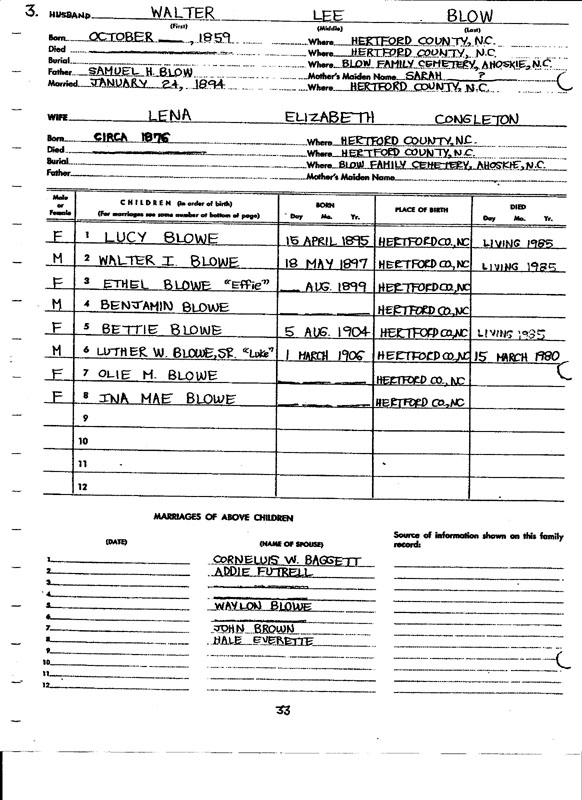 3. HUSBAND WALTER LEE BLOW
(First) (Middle) (Last)
Born OCTOBER , 1859 Where HERTFORD COUNTY, N.C.
Died Where HERTFORD COUNTY, N.C.
Burial Where BLOW FAMILY CEMETERY, AHOSKIE, N.C.
Father SAMUEL H. BLOW Mother's Maiden Name SARAH ?
Married JANUARY 24, 1894 Where HERTFORD COUNTY, N.C.
WIFE LENA ELIZABETH CONGLETON
Born CIRCA 1876 Where HERTFORD COUNTY, N.C.
Died Where HERTFORD COUNTY, N.C.
Burial Where BLOW FAMILY CEMETERY, AHOSKIE, N.C.
Father Mother's Maiden Name
Male or Female CHILDREN (in order of birth) BORN PLACE OF BIRTH DIED
(For marriages see same number at bottom of page) Day Mo. Yr. Day Mo. Yr.
F 1 LUCY BLOWE 15 APRIL 1895 HERTFORD CO, NC LIVING 1985
M 2 WALTER I. BLOWE 18 MAY 1897 HERTFORD CO, NC LIVING 1985
F 3 ETHEL BLOWE "Effie" AUG. 1899 HERTFORD CO, NC
M 4 BENJAMIN BLOWE HERTFORD CO, NC
F 5 BETTIE BLOWE 5 AUG. 1904 HERTFORD CO, NC LIVING 1985
M 6 LUTHER W. BLOWE, SR. "Luke" 1 MARCH 1906 HERTFORD CO, NC 15 MARCH 1980
F 7 OLIE M. BLOWE HERTFORD CO., NC
F 8 INA MAE BLOWE HERTFORD CO., NC
9
10
11
12
MARRIAGES OF ABOVE CHILDREN
(DATE) (NAME OF SPOUSE) Source of information shown on this family record:
1. CORNELUIS W. BAGGETT
2. ADDIE FUTRELL
3.
4.
5. WAYLON BLOWE
6.
7. JOHN BROWN
8. HALE EVERETTE
9.
10.
11.
12.
33